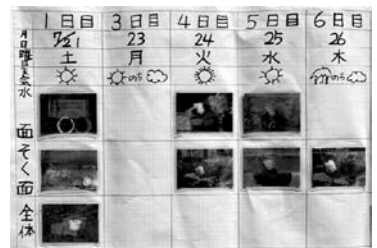 1日目 3日目 4日目 5日目 6日目
月日 7/21 23 24 25 26
曜日 土 月 火 水 木
天気 のち のち
水面
そく面
全体